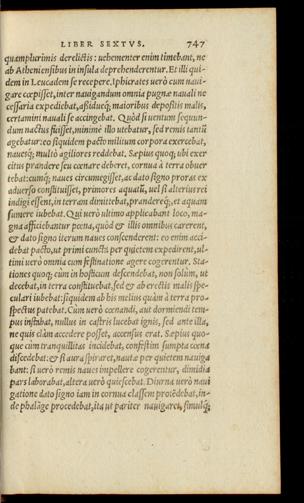 LIBER SEXTVS. 747
quamplurimis derelictis: uehementer enim timebant, ne
ab Atheniensibus in insula deprehenderentur. Et illi qui-
dem in Leucadem se recepere. Iphicrates uerò cum naui-
gare cœpisset, inter nauigandum omnia pugnæ nauali ne
cessaria expediebat, aßidueq; maioribus depositis malis,
certamini nauali se accingebat. Quòd si uentum sequun-
dum nactus fuisset, minimè illo utebatur, sed remis tantũ
agebatur: eo siquidem pacto militum corpora exercebat,
nauesq́; multò agiliores reddebat. Sæpius quoq; ubi exer
citus prandere seu cœnare deberet, cornua à terra obuer
tebat: cumq́; naues circumegisset, ac dato signo proras ex
aduerso constituisset, primores aquatũ, uel si alterius rei
indigi essent, in terram dimittebat, prandereq́;, et aquam
sumere iubebat. Qui uerò ultimo applicabant loco, ma-
gna afficiebantur pœna, quòd & illis omnibus carerent,
& dato signo iterum naues conscenderent: eo enim acci-
debat pacto, ut primi cuncta per quietem expedirent, ul-
timi uerò omnia cum festinatione agere cogerentur. Sta-
tiones quoq; cùm in hosticum descendebat, non solùm, ut
decebat, in terra constituebat, sed & ab erectis malis spe-
culari iubebat: siquidem ab his melius quàm à terra pro-
spectus patebat. Cùm uerò cœnandi, aut dormiendi tem-
pus instabat, nullus in castris lucebat ignis, sed ante illa,
ne quis clàm accedere posset, accensus erat. Sæpius quo-
que cùm tranquillitas incidebat, confestim sumpta cœna
discedebat: & si aura spiraret, nautæ per quietem nauiga
bant: si uerò remis naues impellere cogerentur, dimidia
pars laborabat, altera uerò quiescebat. Diurna uerò naui
gatione dato signo iam in cornua classem protẽdebat, in-
de phalãge procedebat, ita ut pariter nauigaret, simulq́;